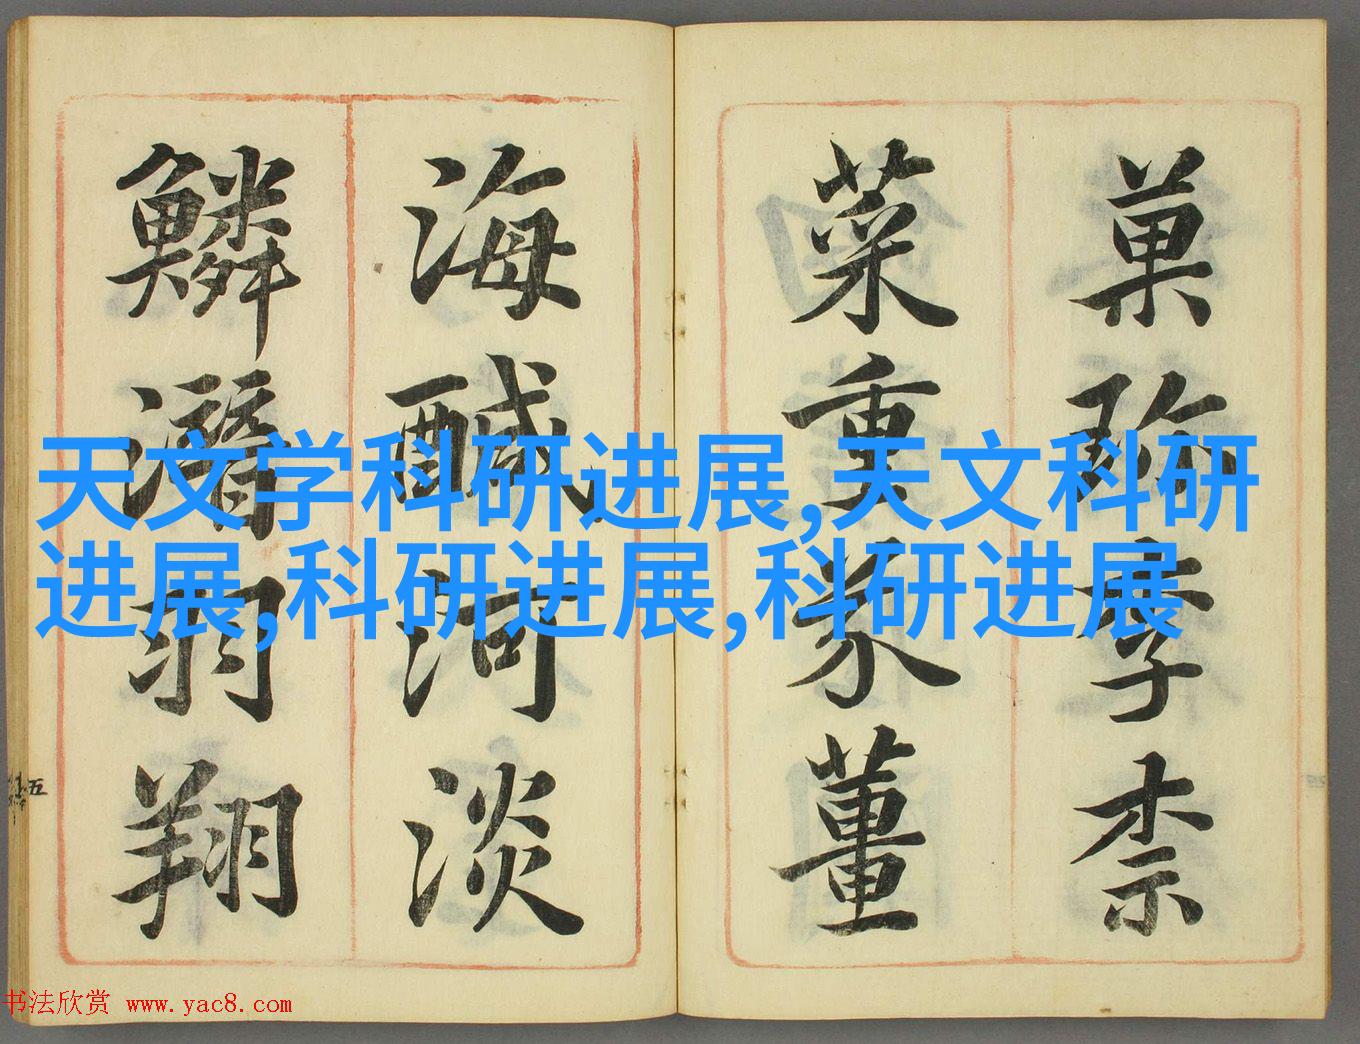 菓珎李柰
菜重芥薑
海醎河淡
鱗潛羽翔
五
天文学科研进展,天文科研
进展,科研进展,科研进展
书法欣赏 www.yac8.com